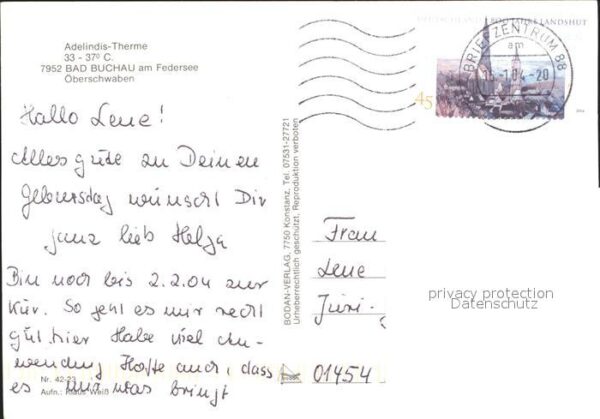 Adelindis-Therme
33 - 37º C.
7952 BAD BUCHAU am Federsee
Oberschwaben
Hallo Lene!
Alles gute zu Deinen
Geburtstag wünscht Dir
ganz lieb Helga
Bin noch bis 2.2.04 zur
Kur. So geht es mir recht
gut hier Habe viel An-
wendung Hoffe auch, dass
es mir was bringt
Nr. 42-23
Aufn.: Klaus Weiß
BODAN-VERLAG, 7750 Konstanz, Tel. 07531-27721
Urheberrechtlich geschützt, Reproduktion verboten
DEUTSCHLAND 800 JAHRE LANDSHUT
45
BRIEFZENTRUM 88
am
1.04-20
Frau
Lene
01454
privacy protection
Datenschutz